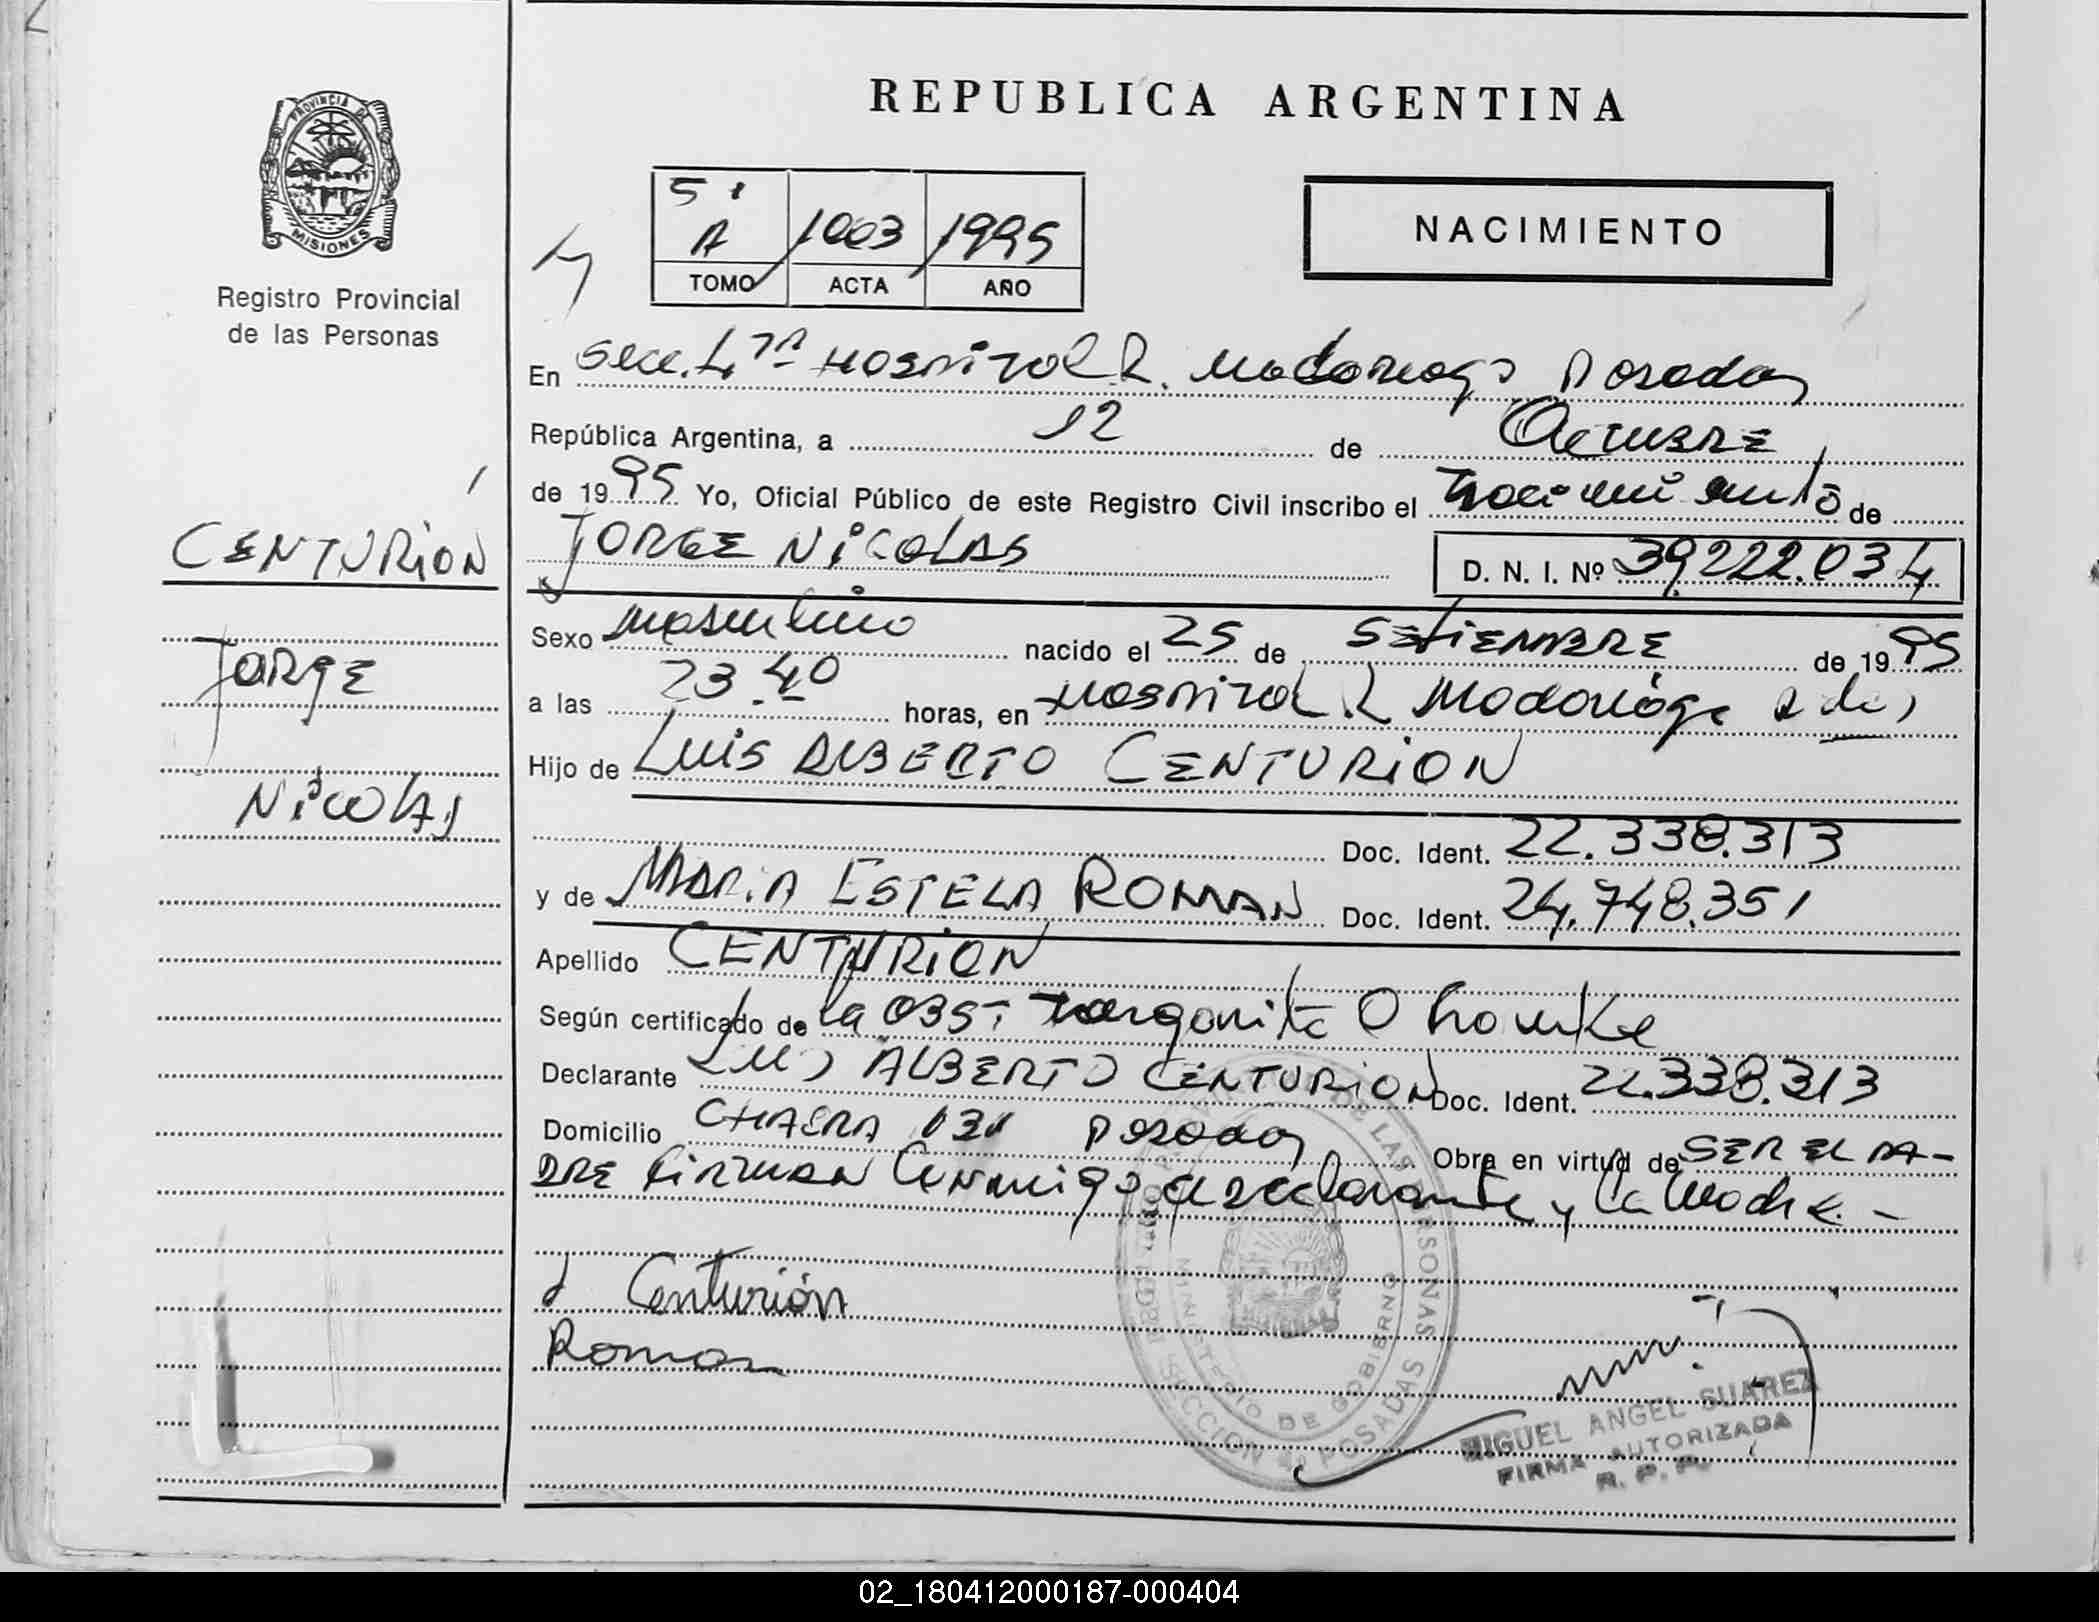 PROVINCIA DE
MISIONES
Registro Provincial
de las Personas
CENTURION
JORGE
NICOLAS
REPUBLICA ARGENTINA
5ª A 1003 1995
TOMO ACTA AÑO
NACIMIENTO
En Secc. 4ª Hospital R. Madariaga Posadas
República Argentina, a 12 de Octubre
de 1995 Yo, Oficial Público de este Registro Civil inscribo el nacimiento de
JORGE NICOLAS D. N. I. Nº 39.222.034
Sexo masculino nacido el 25 de SETIEMBRE de 1995
a las 23.40 horas, en Hospital R Madariaga
Hijo de LUIS ALBERTO CENTURION
Doc. Ident. 22.338.313
y de MARIA ESTELA ROMAN Doc. Ident. 24.748.351
Apellido CENTURION
Según certificado de la OBST Margarita
Declarante LUIS ALBERTO CENTURION Doc. Ident. 22.338.313
Domicilio CHACRA 131 Posadas Obra en virtud de SER EL PA-
DRE FIRMAN Conmigo el declarante y la Madre. -
Centurión
Roman
DE LAS PERSONAS
MINISTERIO DE GOBIERNO
SECCION 4ª POSADAS
MIGUEL ANGEL SUAREZ
FIRMA AUTORIZADA
R. P. P.
02_180412000187-000404